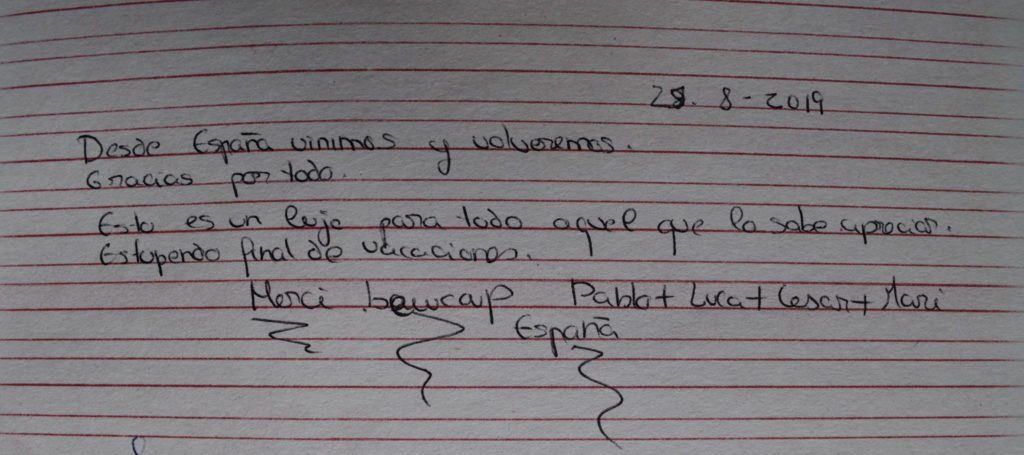 8-2019
Desde España vinimos y volveremos.
Gracias por todo.
Esto es un lujo para todo aquel que lo sabe apreciar.
Estupendo final de vacaciones.
Merci beucap Pablo + Luca + Cesar + Mari
España